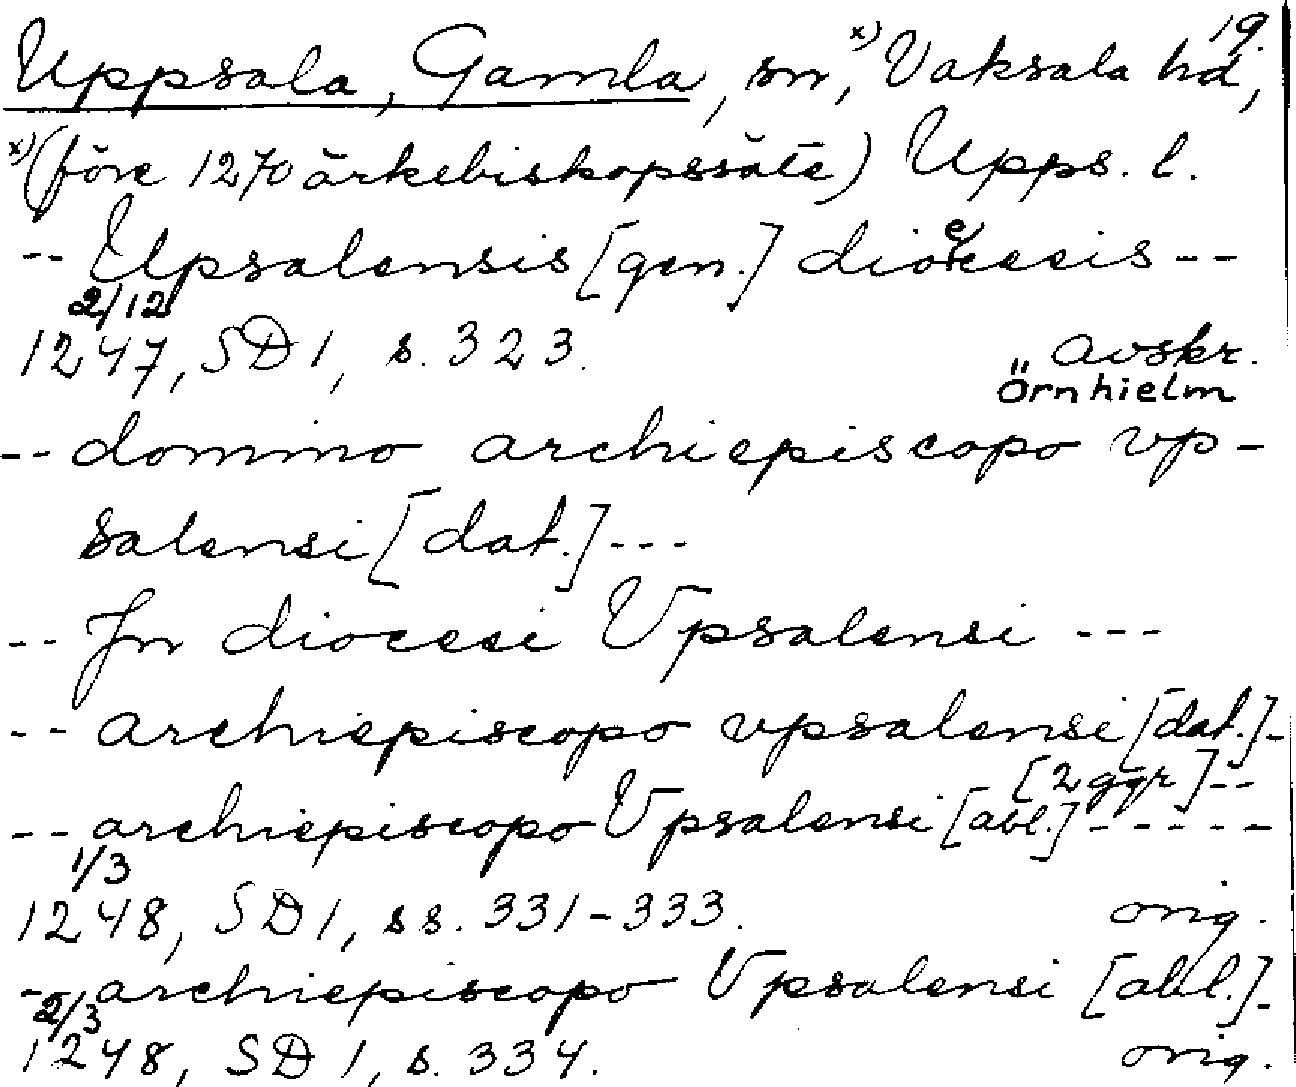 19.
Uppsala, Gamla, sn, x) Vaksala hd,
x) (före 1270 ärkebiskopssäte) Upps. l.
-- Upsalensis [gen.] dioecesis --
2/12
1247, SD 1, s. 323. avskr.
Örnhielm
-- domino archiepiscopo vp-
salensi [dat.] ---
-- Jn diocesi Vpsalensi ---
-- archiepiscopo vpsalensi [dat.] -
[2 ggr] --
-- archiepiscopo Vpsalensi [abl.] -----
1/3
1248, SD 1, ss. 331-333. orig.
-- archiepiscopo Vpsalensi [abl.] -
2/3
1248, SD 1, s. 334. orig.